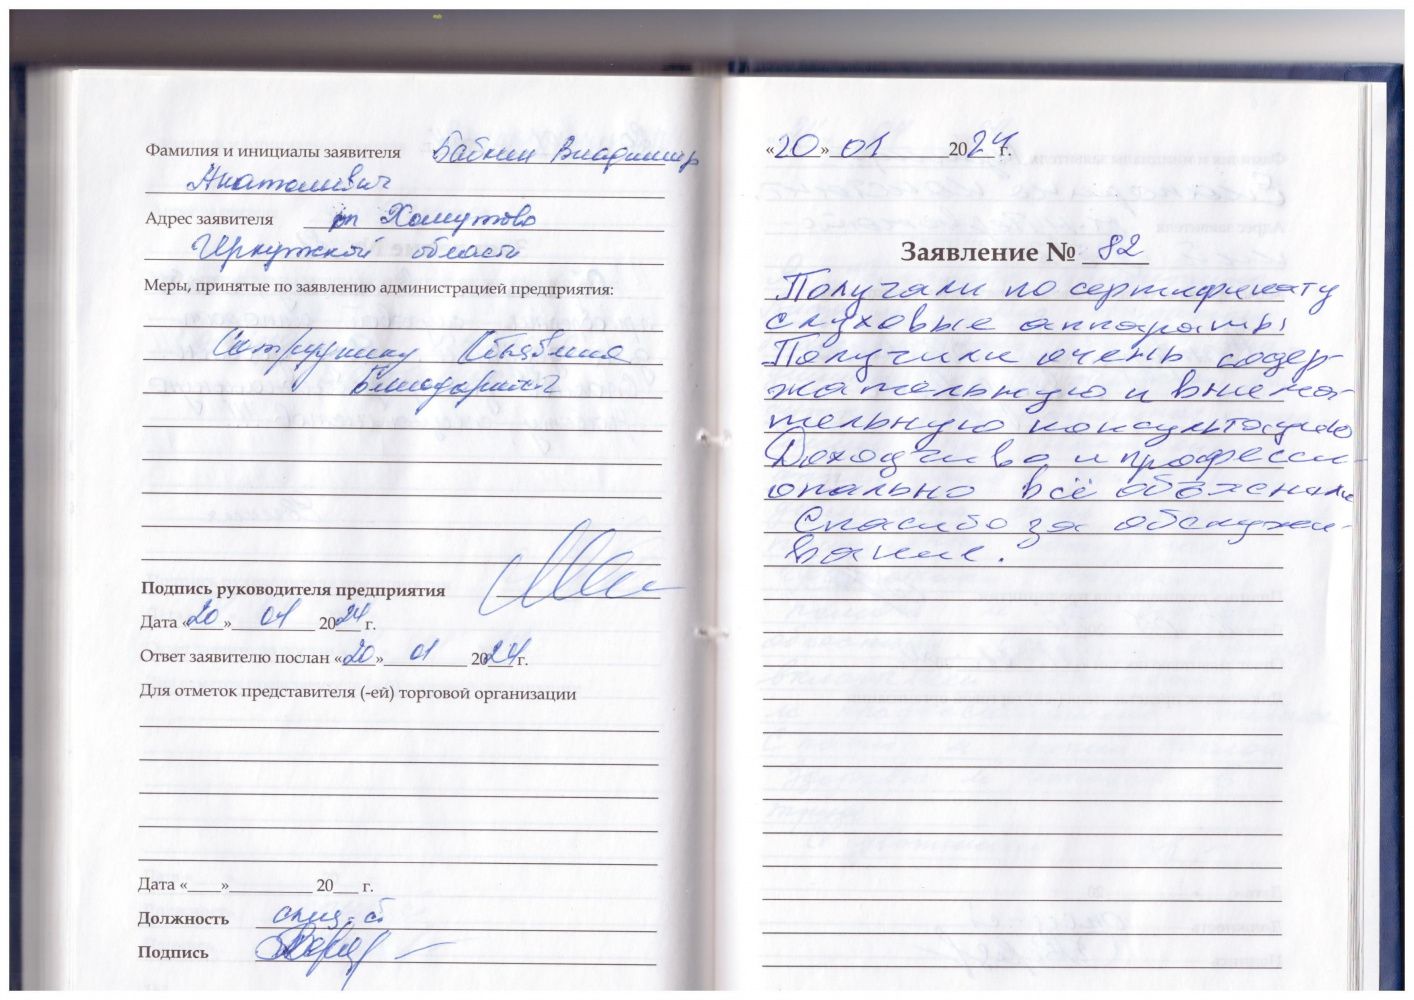 Фамилия и инициалы заявителя Бабкин Владимир
Анатольевич
Адрес заявителя рп Хомутово
Иркутской области
Меры, принятые по заявлению администрацией предприятия:
Сотруднику Объявлена
Благодарность
Подпись руководителя предприятия
Дата «20» 01 2024 г.
Ответ заявителю послан «20» 01 2024 г.
Для отметок представителя (-ей) торговой организации
Дата «____»__________ 20___ г.
Должность
Подпись
«20» 01 2024 г.
Заявление № 82
Получали по сертификату
слуховые аппараты
Получили очень содер-
жательную и внима-
тельную консультацию
Доходчиво и професси-
онально всё объяснили
Спасибо за обслужи-
вание.